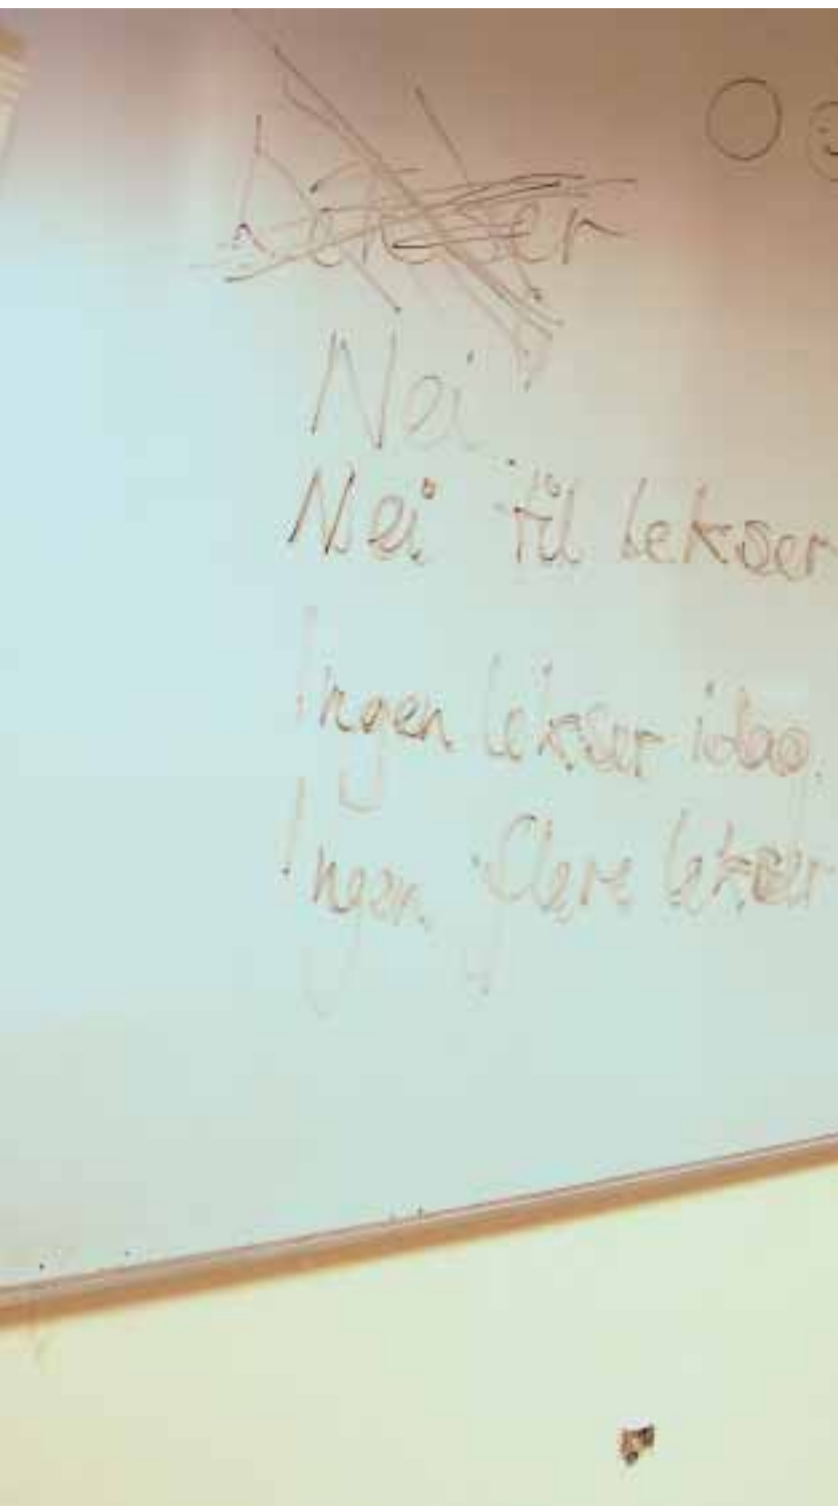 Lekser
Nei
Nei til lekser
Ingen lekser idag.
Ingen flere lekser